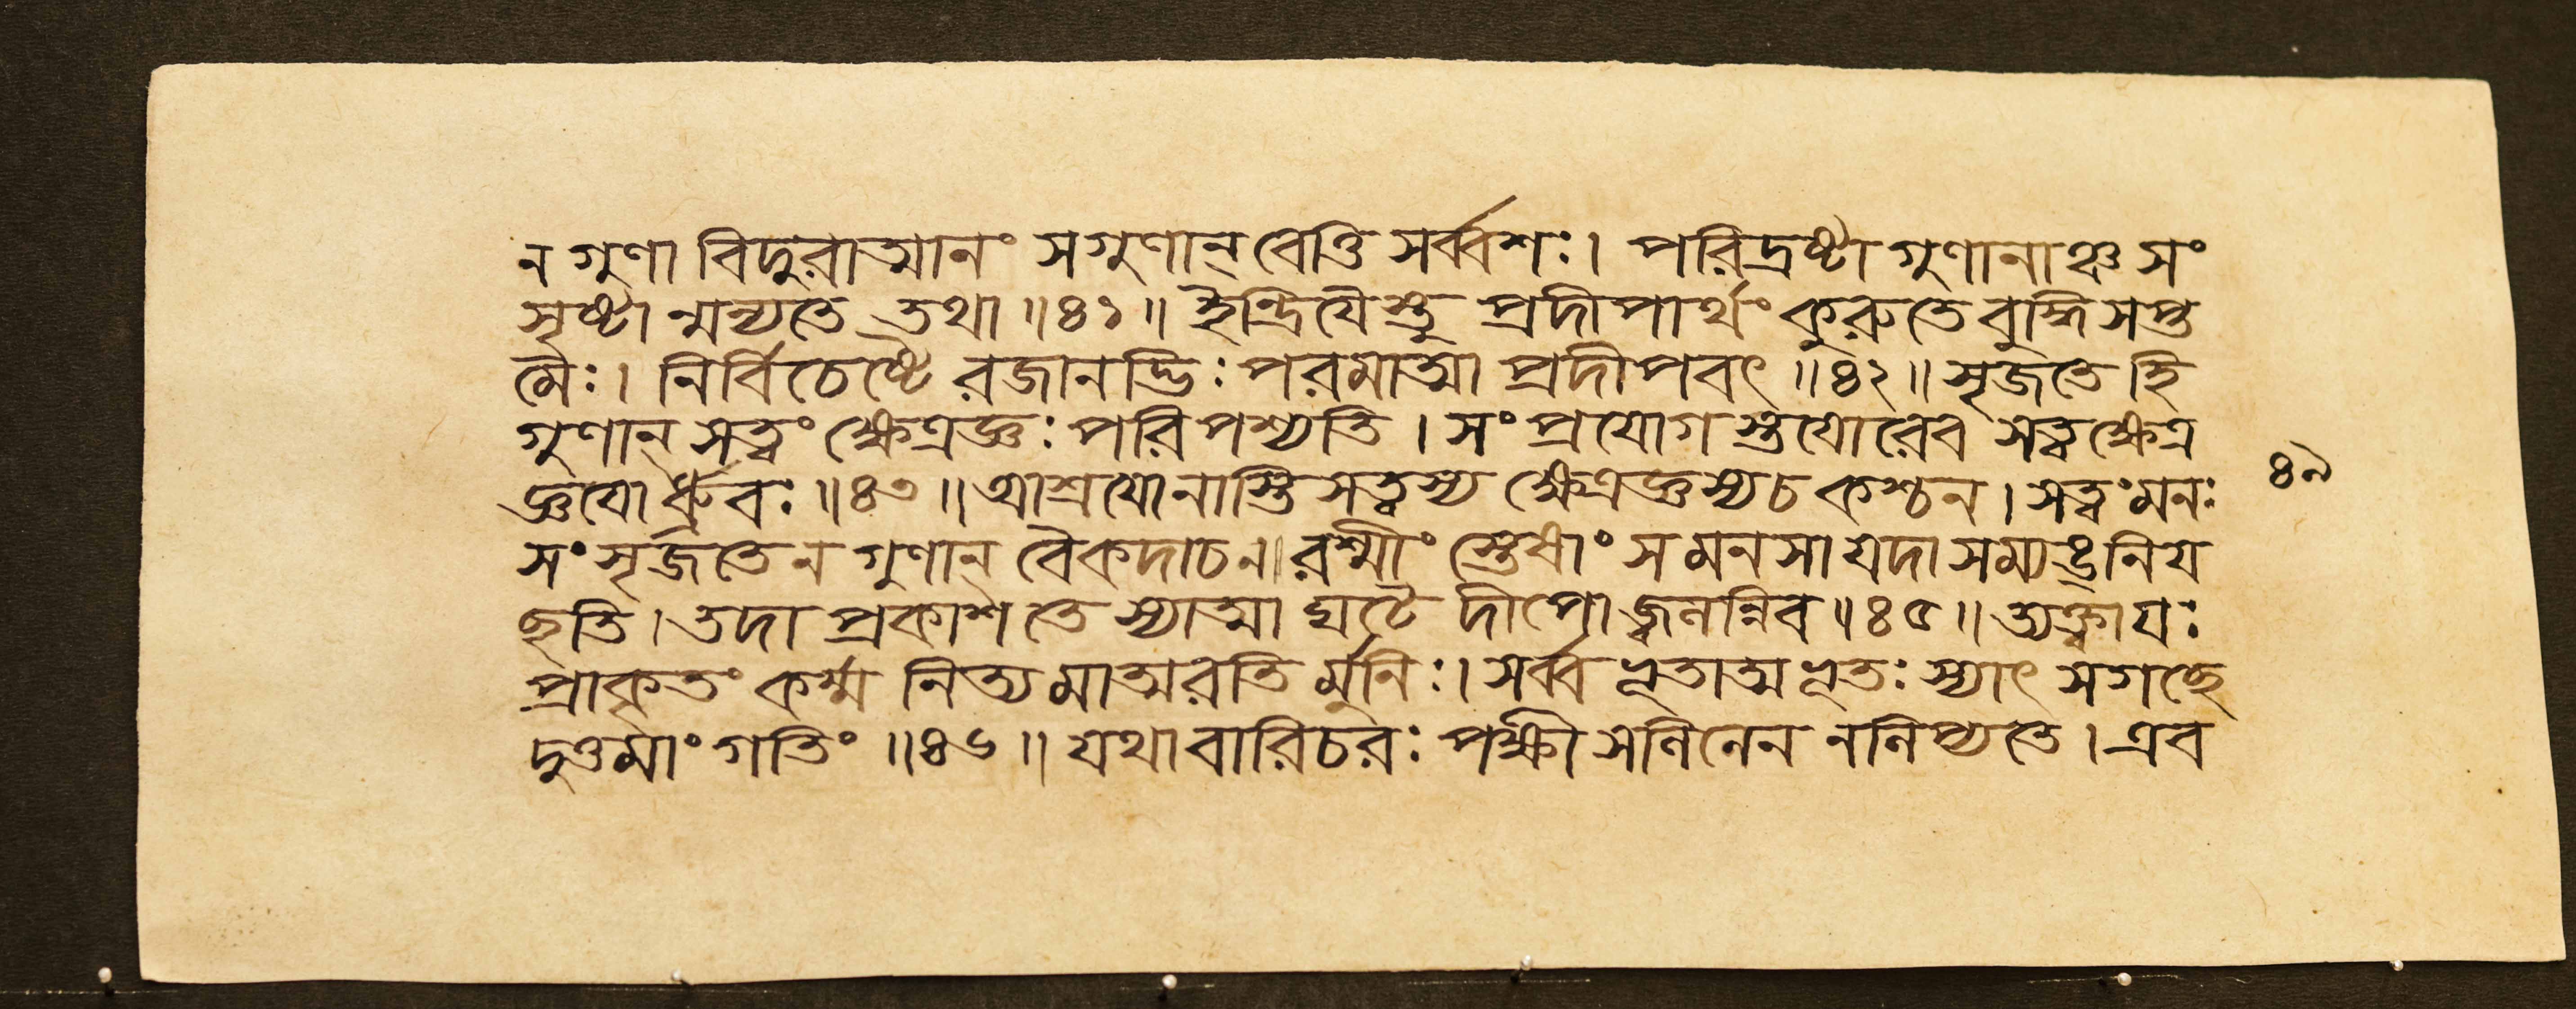 ন গুণা বিদুরাত্মানং সগুণান্ বেত্তি সর্ব্বশঃ। পরিদ্রষ্টা গুণানাঞ্চ সং
সৃষ্টা ন্মন্যতে তথা ॥৪১॥ ইন্দ্রিযৈস্তু প্রদীপার্থং কুরুতে বুদ্ধিসপ্ত
মৈঃ। নির্বিচেষ্টৈ রজানদ্ভিঃ পরমাত্মা প্রদীপবৎ ॥৪২॥ সৃজতে হি
গুণান্ সত্ত্বং ক্ষেত্রজ্ঞঃ পরিপশ্যতি । সংপ্রযোগ স্তযোরেব সত্ত্বক্ষেত্র
জ্ঞযো র্ধ্রুবঃ ॥৪৩॥ আশ্রযো নাস্তি সত্ত্বস্য ক্ষেত্রজ্ঞস্য চ কশ্চন । সত্ত্বং মনঃ
সংসৃজতে ন গুণান্ বৈ কদাচন॥ রশ্মীং স্তেষাং স মনসা যদা সম্যঙ্নিয
ছতি । তদা প্রকাশতে স্যাত্মা ঘটে দীপো জ্বলন্নিব ॥৪৫॥ ত্যক্ত্বা যঃ
প্রাকৃতং কর্ম্ম নিত্য মাত্মরতি র্মুনিঃ। সর্ব্ব ভূতাত্ম ভূতঃ স্যাৎ সগছে
দুত্তমাং গতিং ॥৪৬॥ যথা বারিচরঃ পক্ষী সলিলেন ন লিপ্যতে । এব
৪৯